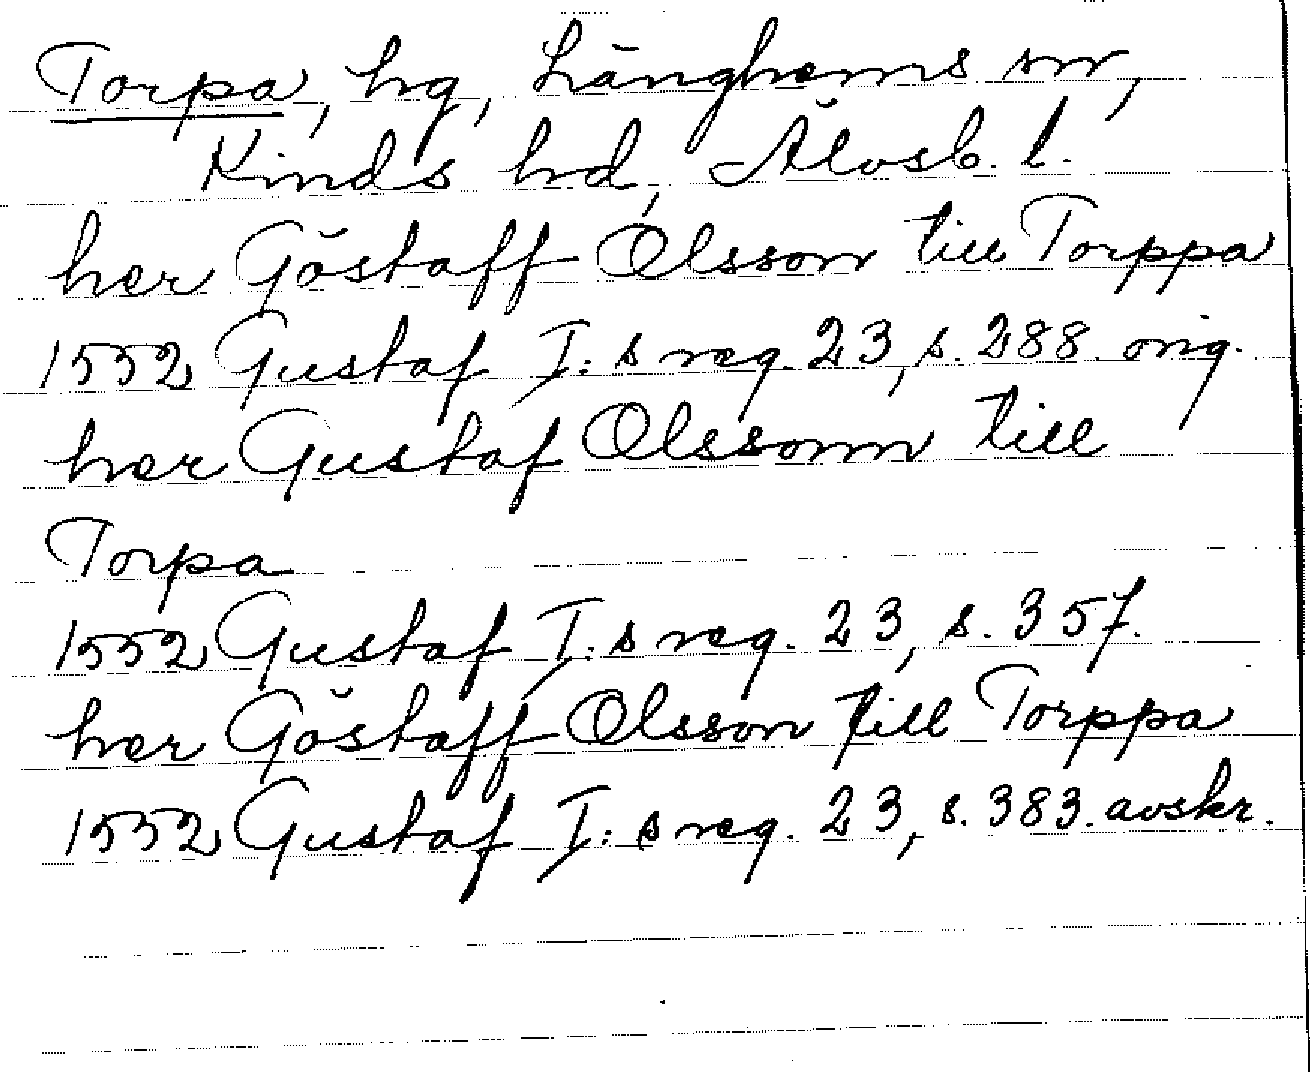 Torpa, hg, Länghems sn,
Kinds hd, Älvsb. l.
her Göstaff Olsson till Torppa
1552 Gustaf I:s reg. 23, s. 288. orig.
her Gustaf Olssonn till
Torpa
1552 Gustaf I:s reg. 23, s. 357.
her Göstaff Olsson till Torppa
1552 Gustaf I:s reg. 23, s. 383. avskr.